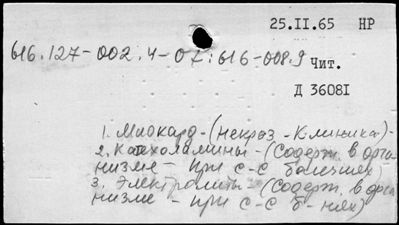 25.II.65 НР
616.127-002.4-07:616-008.9
Чит.
Д 36081
1. Миокард - (некроз - клиника) -
2. Катехоламины - (содерж. в орга-
низме - при с-с больных)
3. Электролиты - (содерж. в орга-
низме - при с-с б-нях)